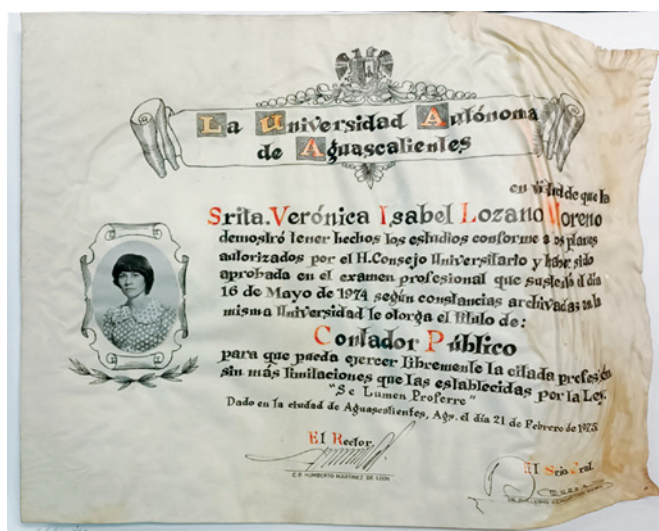 La Universidad Autónoma
de Aguascalientes
en virtud de que la
Srita. Verónica Isabel Lozano Moreno
demostró tener hechos los estudios conforme a los planes
autorizados por el H. Consejo Universitario y haber sido
aprobada en el examen profesional que sustentó el día
16 de Mayo de 1974 según constancias archivadas en la
misma Universidad le otorga el título de:
Contador Público
para que pueda ejercer libremente la citada profesión
sin más limitaciones que las establecidas por la Ley.
"Se Lumen Proferre"
Dado en la ciudad de Aguascalientes, Ags. el día 21 de Febrero de 1975
El Rector.
C.P. HUMBERTO MARTINEZ DE LEON
El Srio. Gral.